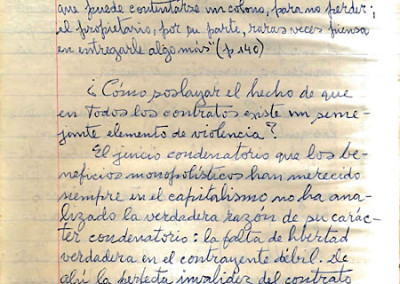 que puede contentarse un colono, para no perder;
el propietario, por su parte, raras veces piensa
en entregarle algo más" (p 140)
¿Cómo soslayar el hecho de que
en todos los contratos existe un seme-
jante elemento de violencia?
El juicio condenatorio que los be-
neficios monopolísticos han merecido
siempre en el capitalismo no ha ana-
lizado la verdadera razón de su carác-
ter condenatorio: la falta de libertad
verdadera en el contrayente débil. De
ahí la perfecta invalidez del contrato